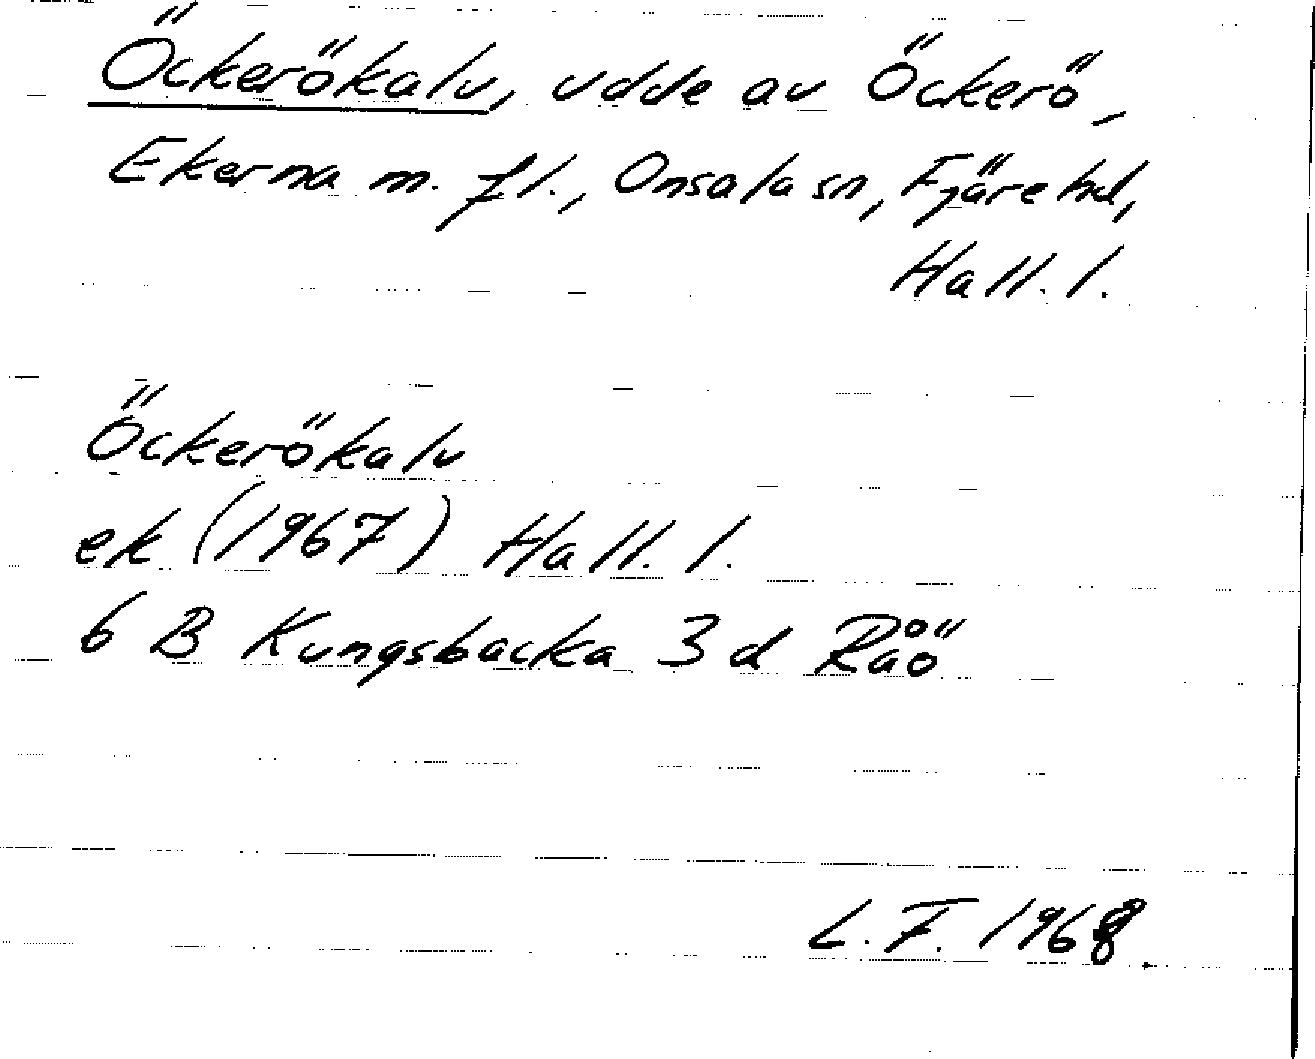 Öckerökalv, udde av Öckerö,
Ekerna m. fl., Onsala sn, Fjäre hd,
Hall. l.
Öckerökalv
ek (1967) Hall. l.
6 B Kungsbacka 3 d Råö
L.F. 1968.